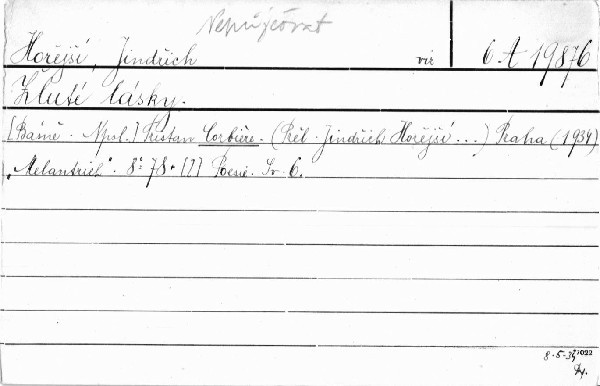 Nepůjčovat
Hořejší, Jindřich viz 6.t 19876
Žluté lásky.
[Básně. Np̌sl.] Tristan Corbière. (Přel. Jindřich Hořejší ...) Praha (1934)
„Melantrich". 8° 78 + [I] Poesie. Sv. 6.
8-5-35